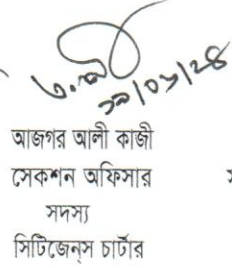 আজগর আলী কাজী
সেকশন অফিসার
সদস্য
সিটিজেন্স চার্টার